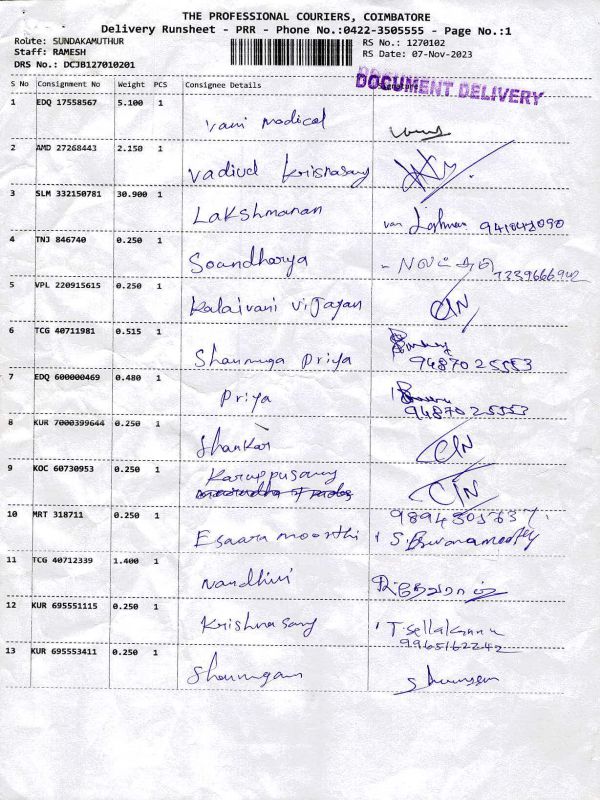 THE PROFESSIONAL COURIERS, COIMBATORE
Delivery Runsheet - PRR - Phone No.:0422-3505555 - Page No.:1
Route: SUNDAKAMUTHUR
Staff: RAMESH
DRS No.: DCJB127010201
RS No.: 1270102
RS Date: 07-Nov-2023
DOCUMENT DELIVERY
S No Consignment No Weight PCS Consignee Details
1 EDQ 17558567 5.100 1 Vani medical
2 AMD 27268443 2.150 1 Vadivel Krisnasamy
3 SLM 332150781 30.900 1 Lakshmanan
4 TNJ 846740 0.250 1 Soandharya
7339666942
5 VPL 220915615 0.250 1 Kalaivani Vijayan
6 TCG 40711981 0.515 1 Shanmuga Priya
9487025553
7 EDQ 600000469 0.480 1 Priya
9487025553
8 KUR 7000399644 0.250 1 Shankar
9 KOC 60730953 0.250 1 Karuppusamy
10 MRT 318711 0.250 1 Esaara moorthi
11 TCG 40712339 1.400 1 Nandhini
12 KUR 695551115 0.250 1 Krishnasamy T Sellakannu
9965162242
13 KUR 695553411 0.250 1 Shanmugam